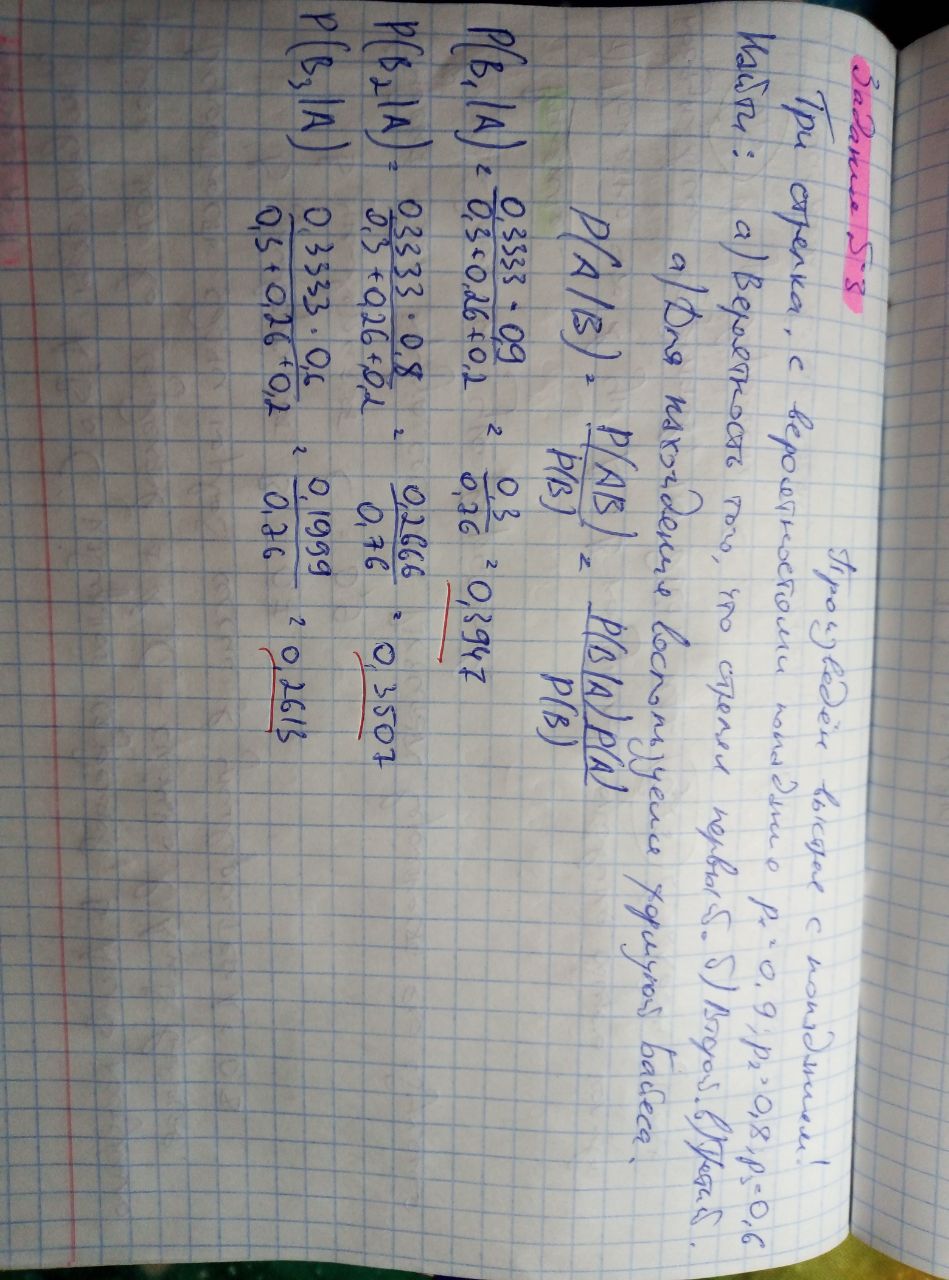 Задание №3
Произведён выстрел с попаданием!
Три стрелка, с вероятностями попадания p₁=0,9; p₂=0,8; p₃=0,6
Найти: а) Вероятность того, что стрелял первый. б) Второй. в) Третий.
а) Для нахождения воспользуемся формулой Байеса.
P(A/B) = P(AB)/P(B) = P(B|A)P(A)/P(B)
P(B₁|A) = 0,3333·0,9/0,3+0,26+0,2 = 0,3/0,76 = 0,3947
P(B₂|A) = 0,3333·0,8/0,3+0,26+0,2 = 0,2666/0,76 = 0,3507
P(B₃|A) 0,3333·0,6/0,3+0,26+0,2 = 0,1999/0,76 = 0,2613